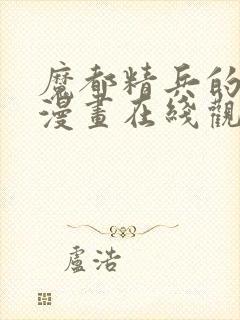 魔都精兵的
漫畫在綫觀
盧浩